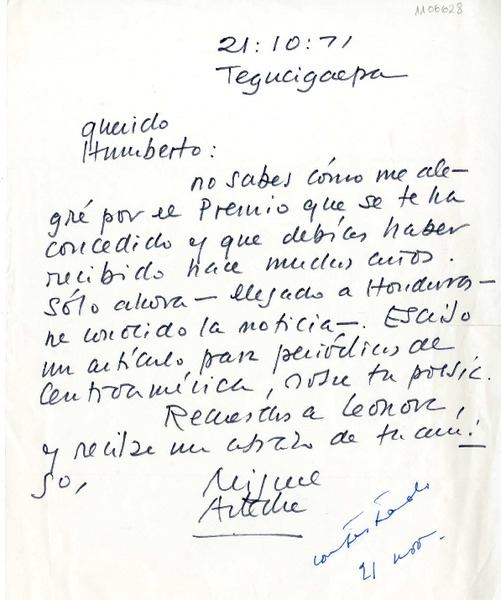 1106628
21:10:71
Tegucigalpa
querido
Humberto:
no sabes cómo me ale-
gré por el Premio que se te ha
concedido y que debías haber
recibido hace muchos años.
Sólo ahora — llegado a Honduras —
he conocido la noticia —. Escribo
un artículo para periódicos de
Centroamérica, sobre tu poesía.
Recuerdos a Leonora,
y recibe un abrazo de tu ami-
go,
Miguel
Arteche
contestada
21 nov.